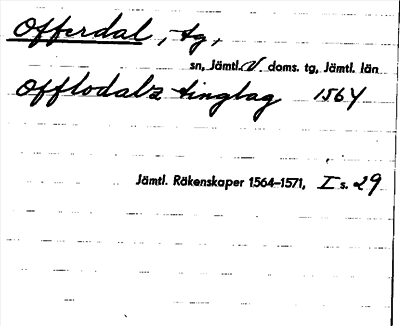 Offerdal, tg,
sn, Jämtl. V. doms. tg, Jämtl. län
Offlodalz tinglag 1564
Jämtl. Räkenskaper 1564–1571, I s. 29